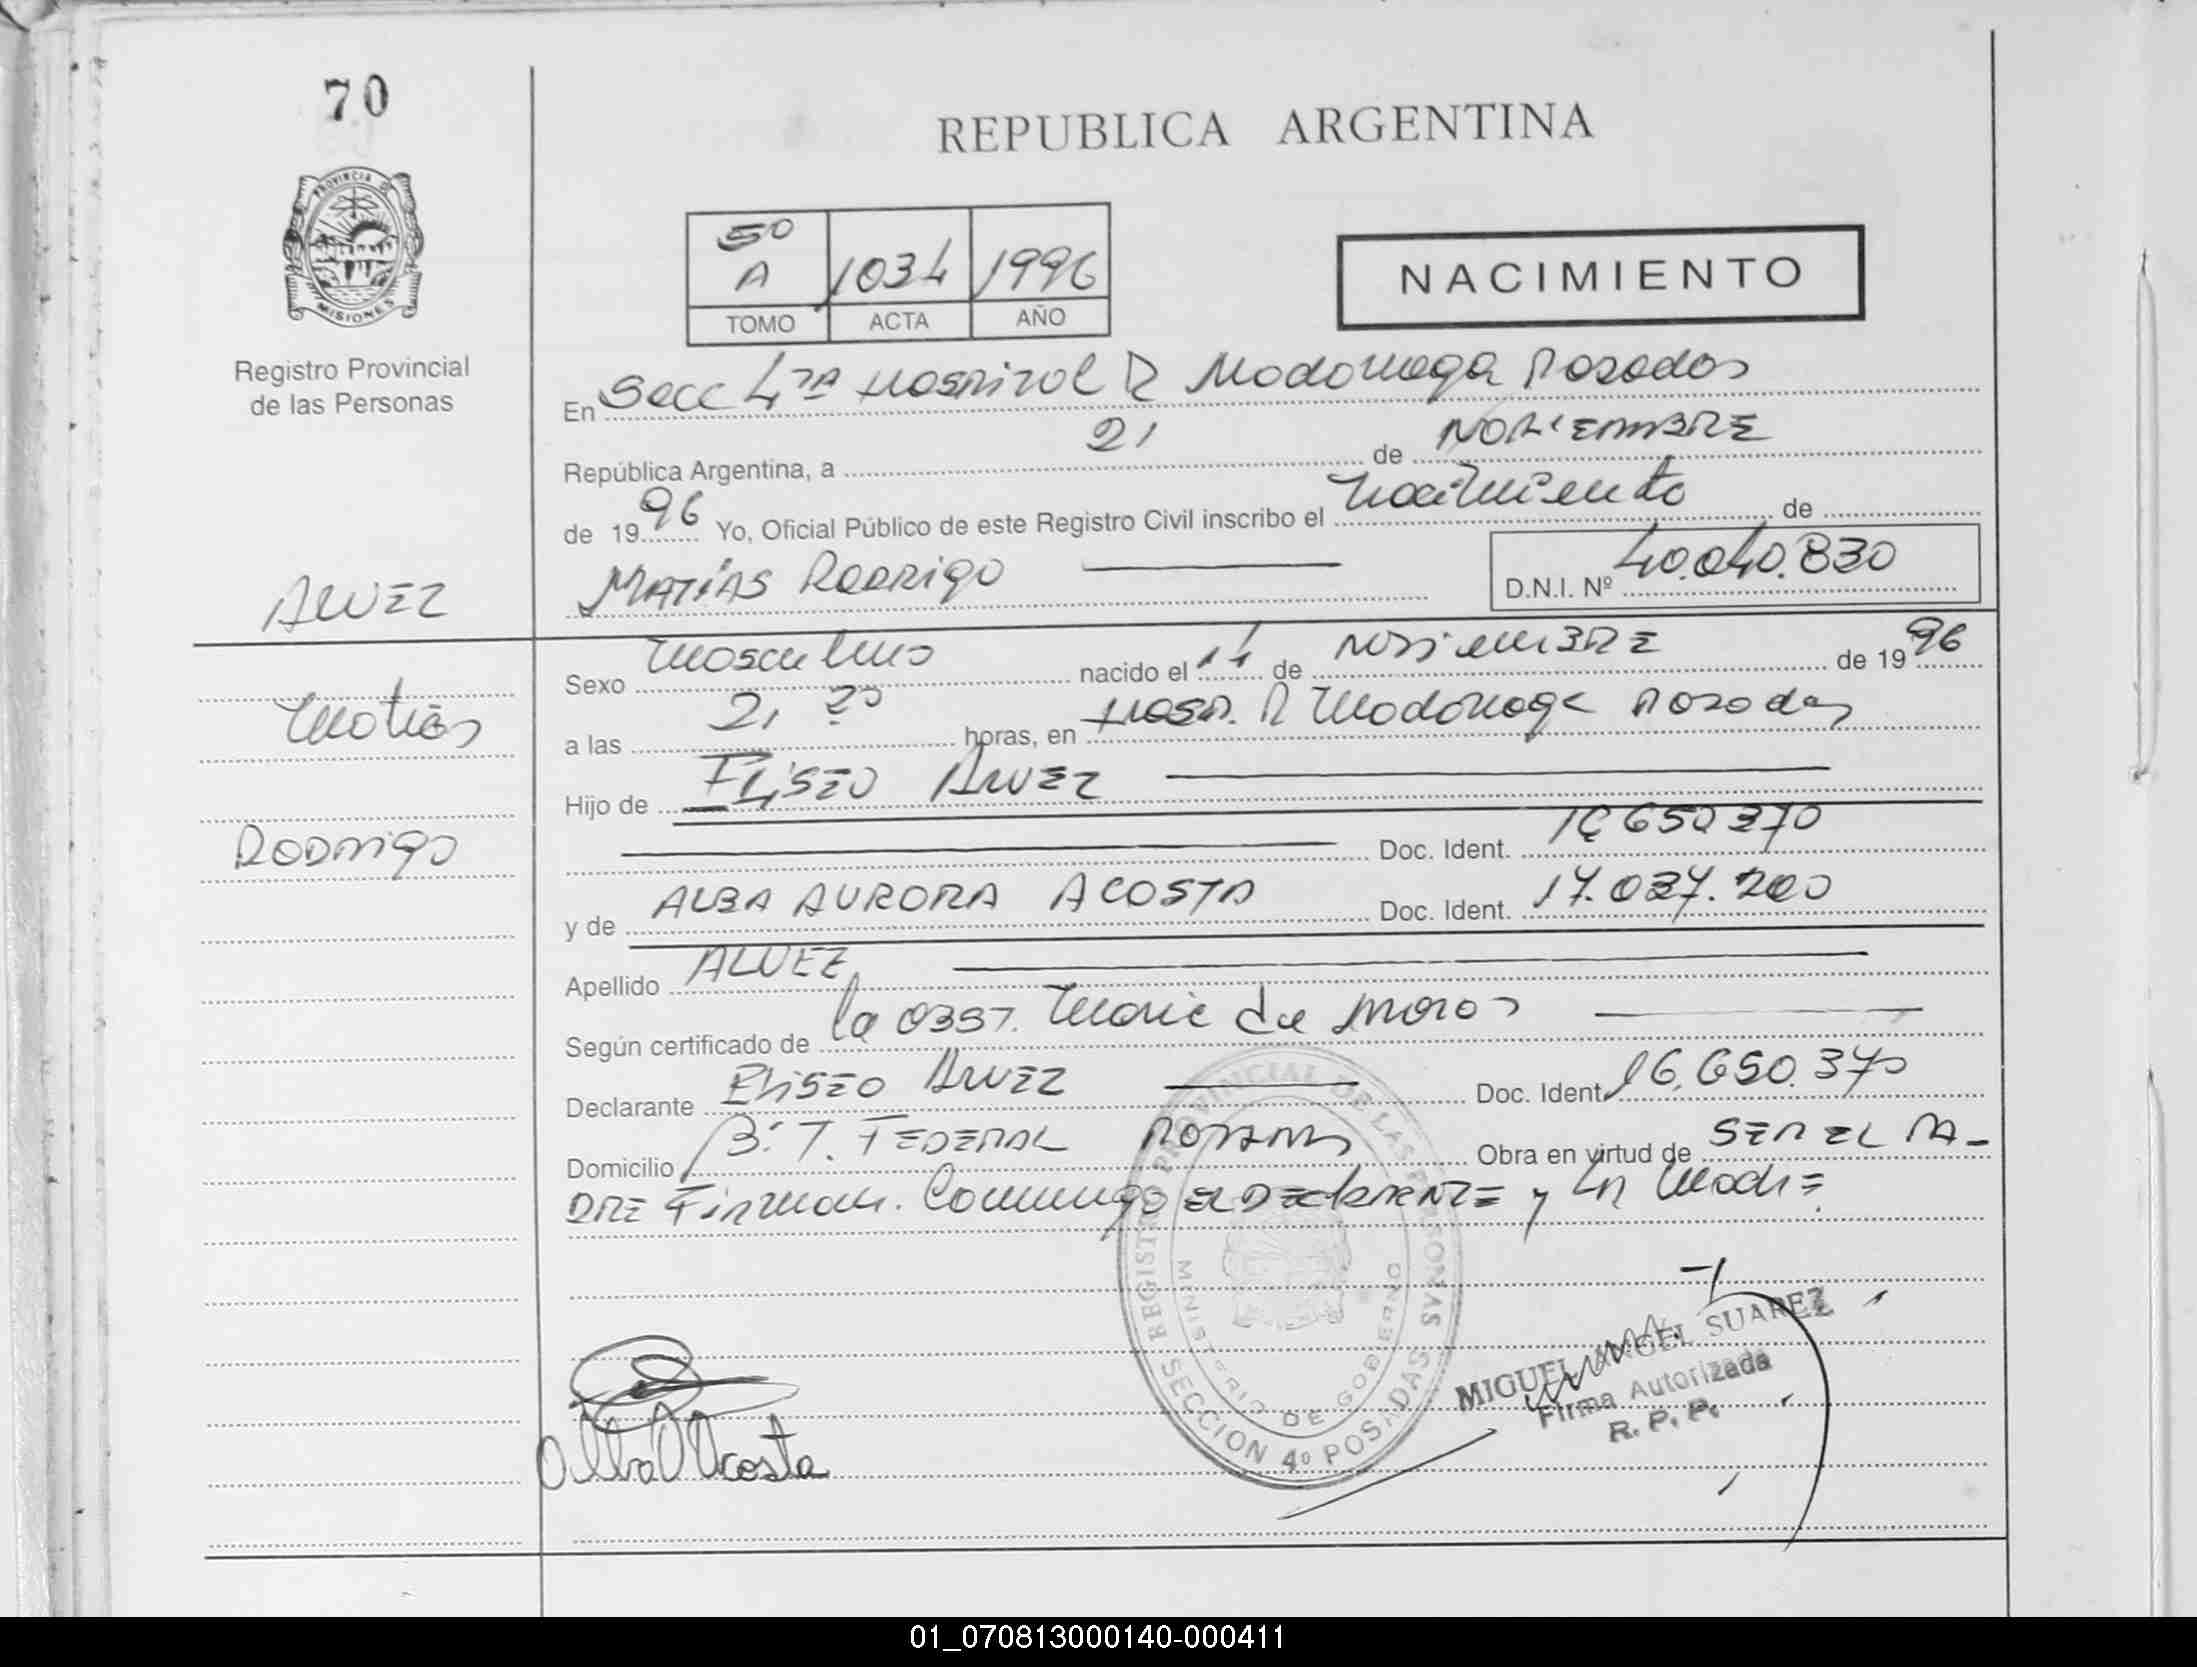 70
REPUBLICA ARGENTINA
PROVINCIA DE
MISIONES
Registro Provincial
de las Personas
5º
A 1034 1996
TOMO ACTA AÑO
NACIMIENTO
En Secc 4ta Hospital R Madariaga Posadas
República Argentina, a 21 de NOVIEMBRE
de 1996 Yo, Oficial Público de este Registro Civil inscribo el Nacimiento de
MATÍAS RODRIGO D.N.I. Nº 40.040.830
ALVEZ
Matías
Rodrigo
Sexo Masculino nacido el 14 de NOVIEMBRE de 1996
a las 21 horas, en Hosp. R Madariaga Posadas
Hijo de ELISEO ALVEZ
Doc. Ident. 16650370
y de ALBA AURORA ACOSTA Doc. Ident. 17.037.200
Apellido ALVEZ
Según certificado de la OBST. Maric de Moros
Declarante ELISEO ALVEZ Doc. Ident. 16.650.370
Domicilio B: T. FEDERAL POSADAS Obra en virtud de SER EL PA-
DRE Firman. Conmigo EL DECLARANTE y LA Madre
REGISTRO PROVINCIAL DE LAS PERSONAS
MINISTERIO DE GOBIERNO
SECCION 4º POSADAS
Alba A Acosta
MIGUEL ANGEL SUAREZ
Firma Autorizada
R. P. P.
01_070813000140-000411